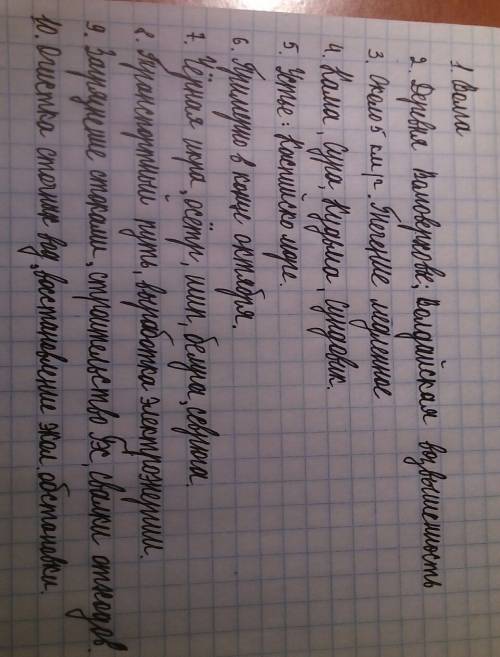 1. Волга
2. Деревня Волговерховье; Валдайская возвышенность
3. Около 5 км/ч. Течение медленное
4. Кама, Сура, Кудьма, Сундовик.
5. Устье: Каспийско море.
6. Примерно в конце октября.
7. Чёрная икра, осётр, шип, белуга, севрюга.
8. Транспортный путь, выработка электроэнергии.
9. Загрязнение стоками, строительство ГЭС, свалки отходов.
10. Очистка сточных вод, востановление экол. обстановки.